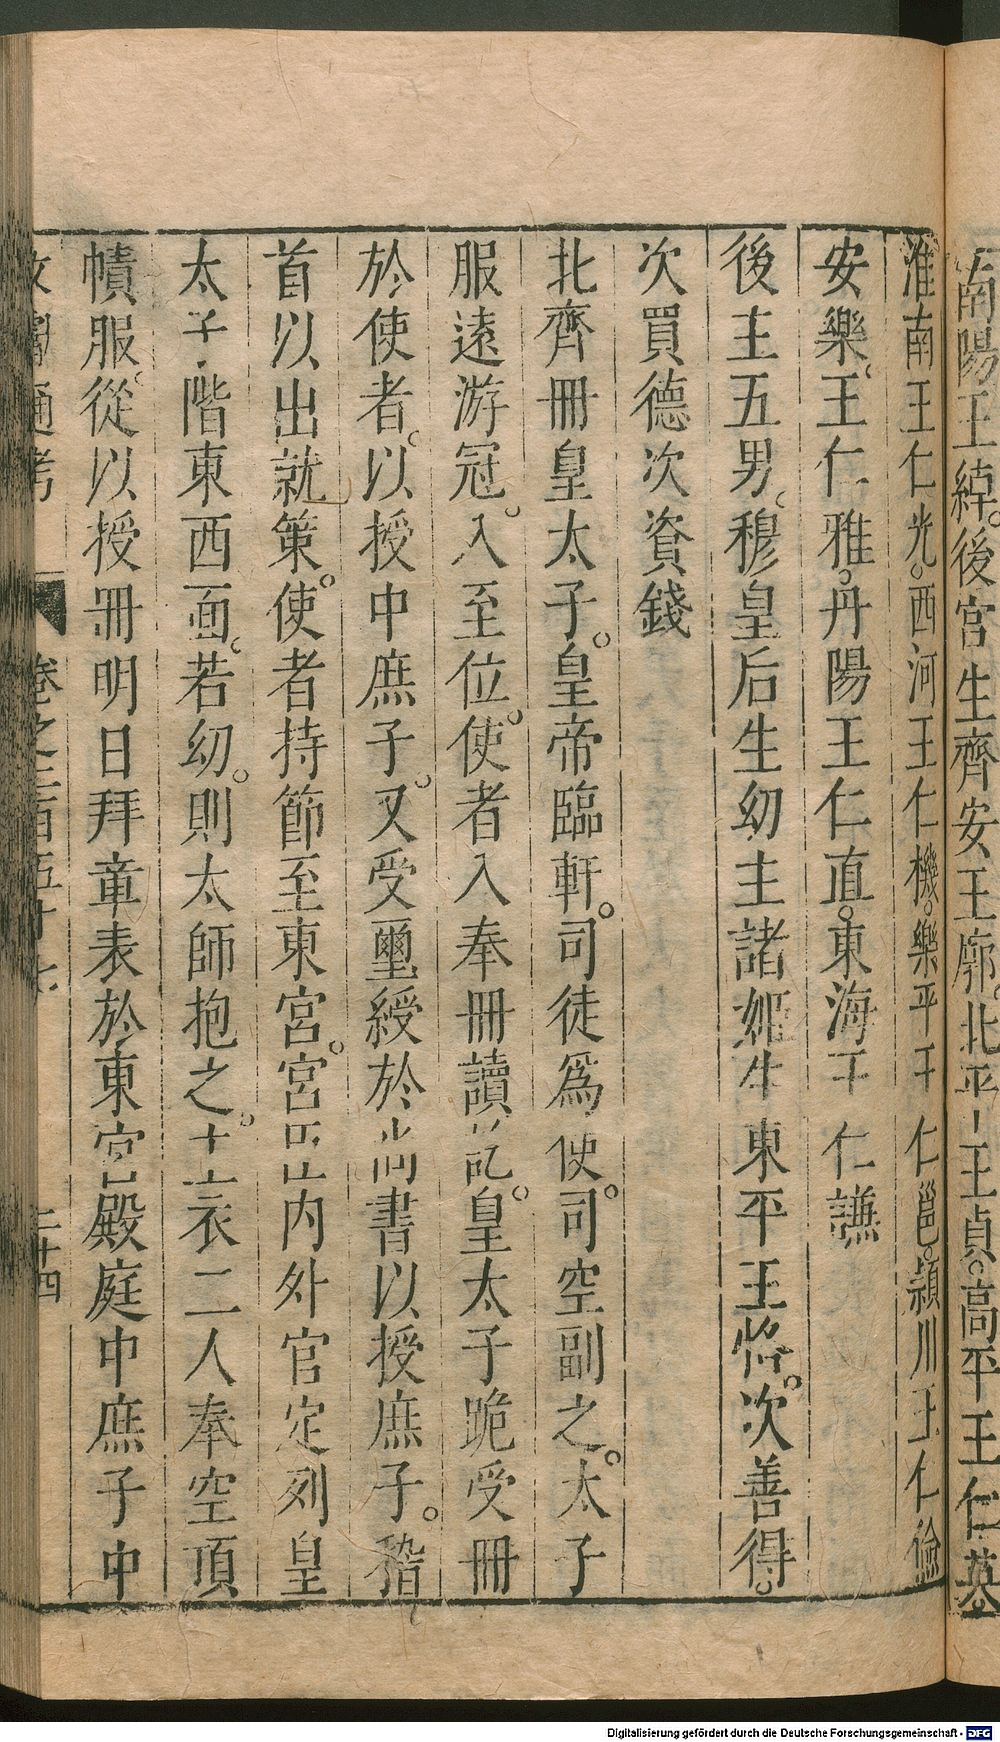 南陽王綽。後宮生齊安王廓。北平王貞。高平王仁
淮南王仁光。西河王仁機。樂平王仁邕。潁川王仁儉
安樂王仁雅。丹陽王仁直。東海王仁謙
後主五男。穆皇后生幼主諸姬生東平王恪。次善得。
次買德次資錢
北齊冊皇太子。皇帝臨軒。司徒爲使。司空副之。太子
服遠游冠。入至位。使者入奉冊讀訖。皇太子跪受冊
於使者。以授中庶子。又受璽綬於尚書以授庶子。稽
首以出就策。使者持節至東宮。宮臣內外官定列皇
太子階東西面。若幼。則太師抱之。主衣二人奉空頂
幘服從。以授冊明日拜章表於東宮殿庭中庶子中
文獻通考 卷之二百五十七 二十四
Digitalisierung gefördert durch die Deutsche Forschungsgemeinschaft - DFG